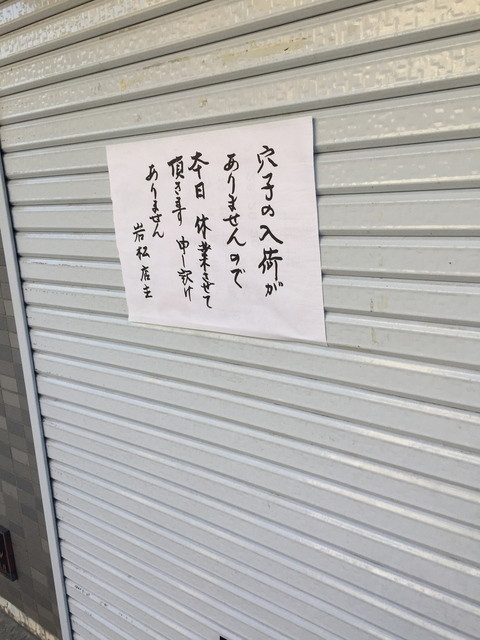 穴子の入荷が
ありませんので
本日 休業させて
頂きます 申し訳け
ありません
岩松店主